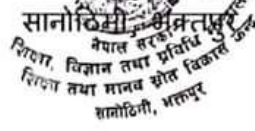 सानोठिमी, भक्तपुर
नेपाल सरकार
शिक्षा, विज्ञान तथा प्रविधि
शिक्षा तथा मानव स्रोत विकास केन्द्र
सानोठिमी, भक्तपुर